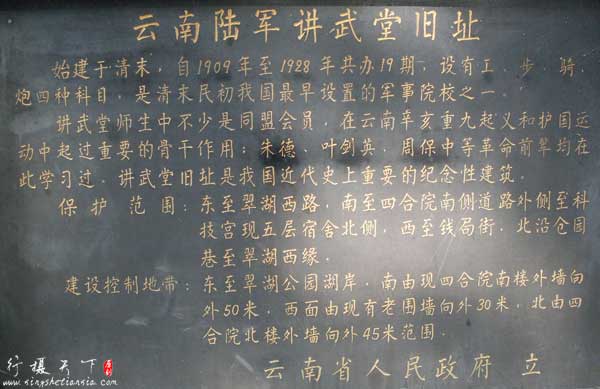 云南陆军讲武堂旧址
始建于清末，自1909年至1928年共办19期，设有工、步、骑、
炮四种科目，是清末民初我国最早设置的军事院校之一．
讲武堂师生中不少是同盟会员，在云南辛亥重九起义和护国运
动中起过重要的骨干作用；朱德、叶剑英、周保中等革命前辈均在
此学习过．讲武堂旧址是我国近代史上重要的纪念性建筑．
保护范围：东至翠湖西路，南至四合院南侧道路外侧至科
技宫现五层宿舍北侧，西至钱局街，北沿仓园
巷至翠湖西缘．
建设控制地带：东至翠湖公园湖岸，南由现四合院南楼外墙向
外50米，西面由现有老围墙向外30米，北由四
合院北楼外墙向外45米范围．
云南省人民政府 立
行摄天下
www.xingshetianxia.com